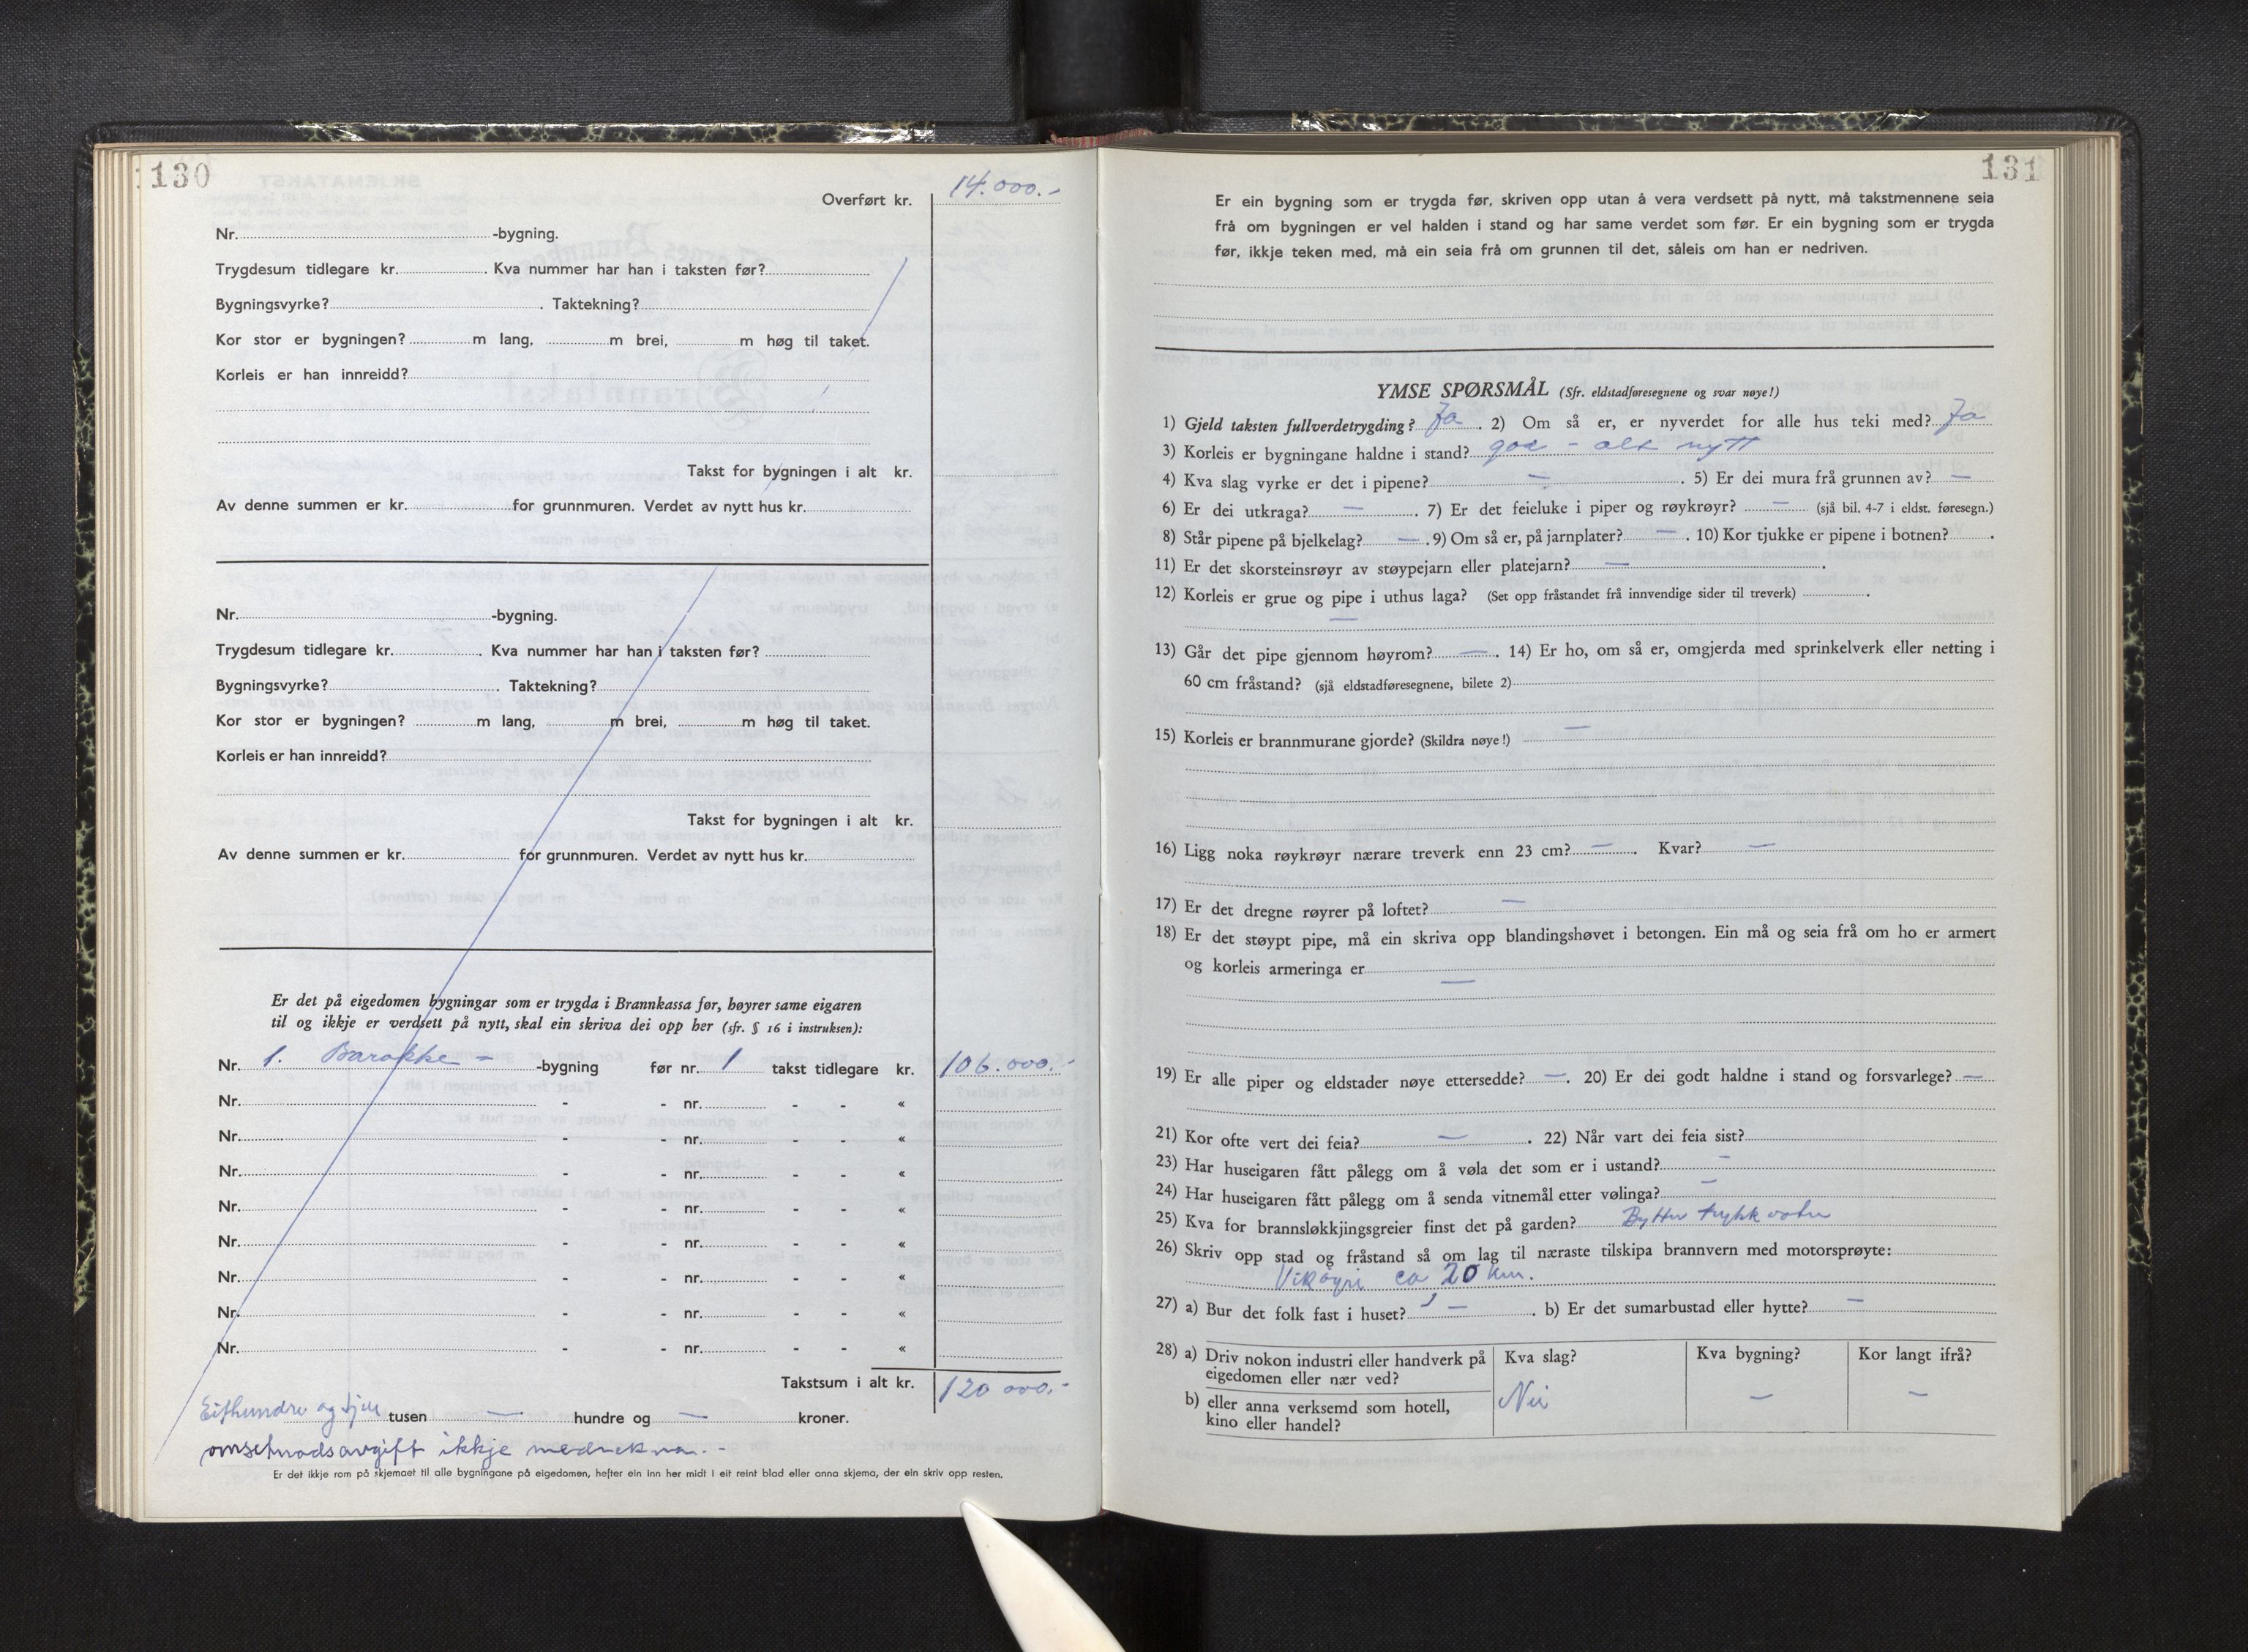 130
Overført kr. 14.000.-
Nr. -bygning.
Trygdesum tidlegare kr. . Kva nummer har han i taksten før?
Bygningsvyrke? . Taktekning?
Kor stor er bygningen? m lang, m brei, m høg til taket.
Korleis er han innreidd?
Takst for bygningen i alt kr.
Av denne summen er kr. for grunnmuren. Verdet av nytt hus kr.
Nr. -bygning.
Trygdesum tidlegare kr. . Kva nummer har han i taksten før?
Bygningsvyrke? . Taktekning?
Kor stor er bygningen? m lang, m brei, m høg til taket.
Korleis er han innreidd?
Takst for bygningen i alt kr.
Av denne summen er kr. for grunnmuren. Verdet av nytt hus kr.
Er det på eigedomen bygningar som er trygda i Brannkassa før, høyrer same eigaren
til og ikkje er verdsett på nytt, skal ein skriva dei opp her (sfr. § 16 i instruksen):
Nr. 1. Barakke - -bygning før nr. 1 takst tidlegare kr. 106.000.-
Nr. - - nr. - - «
Nr. - - nr. - - «
Nr. - - nr. - - «
Nr. - - nr. - - «
Nr. - - nr. - - «
Nr. - - nr. - - «
Nr. - - nr. - - «
Nr. - - nr. - - «
Takstsum i alt kr. 120 000.-
Eithundre og tjue tusen — hundre og — kroner.
omsetnadsavgift ikkje medrekna. -
Er det ikkje rom på skjemaet til alle bygningane på eigedomen, hefter ein inn her midt i eit reint blad eller anna skjema, der ein skriv opp resten.
131
Er ein bygning som er trygda før, skriven opp utan å vera verdsett på nytt, må takstmennene seia
frå om bygningen er vel halden i stand og har same verdet som før. Er ein bygning som er trygda
før, ikkje teken med, må ein seia frå om grunnen til det, såleis om han er nedriven.
YMSE SPØRSMÅL (Sfr. eldstadføresegnene og svar nøye!)
1) Gjeld taksten fullverdetrygding? Ja . 2) Om så er, er nyverdet for alle hus teki med? Ja
3) Korleis er bygningane haldne i stand? god - alt nytt
4) Kva slag vyrke er det i pipene? — . 5) Er dei mura frå grunnen av? —
6) Er dei utkraga? — . 7) Er det feieluke i piper og røykrøyr? — (sjå bil. 4-7 i eldst. føresegn.)
8) Står pipene på bjelkelag? — . 9) Om så er, på jarnplater? — . 10) Kor tjukke er pipene i botnen? .
11) Er det skorsteinsrøyr av støypejarn eller platejarn? — .
12) Korleis er grue og pipe i uthus laga? (Set opp fråstandet frå innvendige sider til treverk) .
—
13) Går det pipe gjennom høyrom? — . 14) Er ho, om så er, omgjerda med sprinkelverk eller netting i
60 cm fråstand? (sjå eldstadføresegnene, bilete 2)
15) Korleis er brannmurane gjorde? (Skildra nøye!) —
16) Ligg noka røykrøyr nærare treverk enn 23 cm? — . Kvar? —
17) Er det dregne røyrer på loftet? —
18) Er det støypt pipe, må ein skriva opp blandingshøvet i betongen. Ein må og seia frå om ho er armert
og korleis armeringa er
—
19) Er alle piper og eldstader nøye ettersedde? — . 20) Er dei godt haldne i stand og forsvarlege? —
21) Kor ofte vert dei feia? — . 22) Når vart dei feia sist?
23) Har huseigaren fått pålegg om å vøla det som er i ustand? —
24) Har huseigaren fått pålegg om å senda vitnemål etter vølinga? —
25) Kva for brannsløkkjingsgreier finst det på garden? Bytter trykkvatn
26) Skriv opp stad og fråstand så om lag til næraste tilskipa brannvern med motorsprøyte:
Vikøyri ca 20 km.
27) a) Bur det folk fast i huset? — . b) Er det sumarbustad eller hytte? —
28) a) Driv nokon industri eller handverk på Kva slag? Kva bygning? Kor langt ifrå?
eigedomen eller nær ved?
b) eller anna verksemd som hotell, Nei — —
kino eller handel?